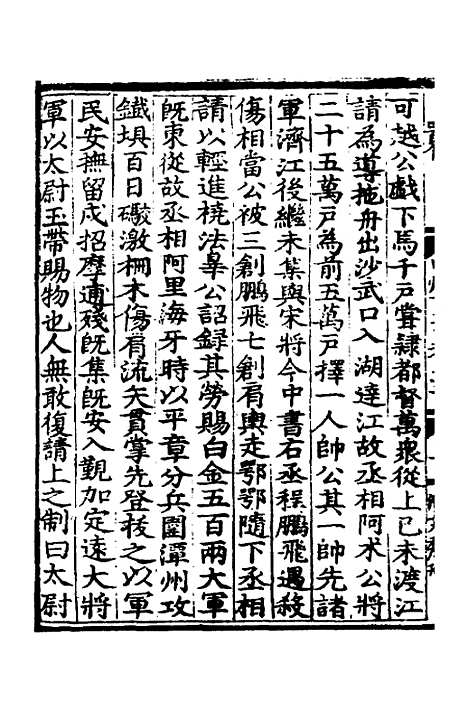 可越公戲下馬千戶嘗隸都督萬衆從上已未渡江
請為導拖舟出沙武口入湖達江故丞相阿术公將
二十五萬戶為前五萬戶擇一人帥公其一帥先諸
軍濟江後繼未集與宋將今中書右丞程鵬飛遇殺
傷相當公被三創鵬飛七創肩輿走鄂鄂隨下丞相
請以輕進橈法辠公詔録其勞賜白金五百兩大軍
既東從故丞相阿里海牙時以平章分兵圍潭州攻
鐵垻百日礮激柵木傷肩流矢貫掌先登拔之以軍
民安撫留戍招摩逋殘既集既安入覲加定遠大將
軍以太尉玉帶賜物也人無敢復請上之制曰太尉